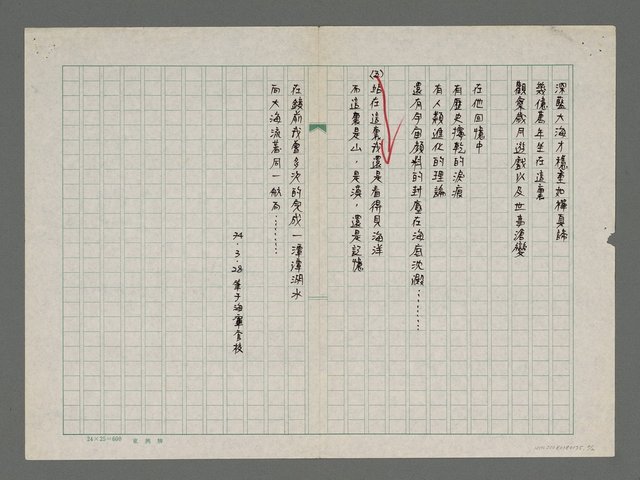 深藍大海才穩重如
幾億萬年坐在這裏
觀察歲月遊戲以及世事滄變
在他回憶中
有歷史擰乾的淚痕
有人類進化的理論
還有宇宙顏料的對應在海底沈澱………
(3)站在這裏我還是看得見海洋
而這裏是山，是漠，還是記憶
在鏡前我會多次的完成一潭潭湖水
向大海流著同一航向………
74.3.28 筆于海軍官校
24×25=600